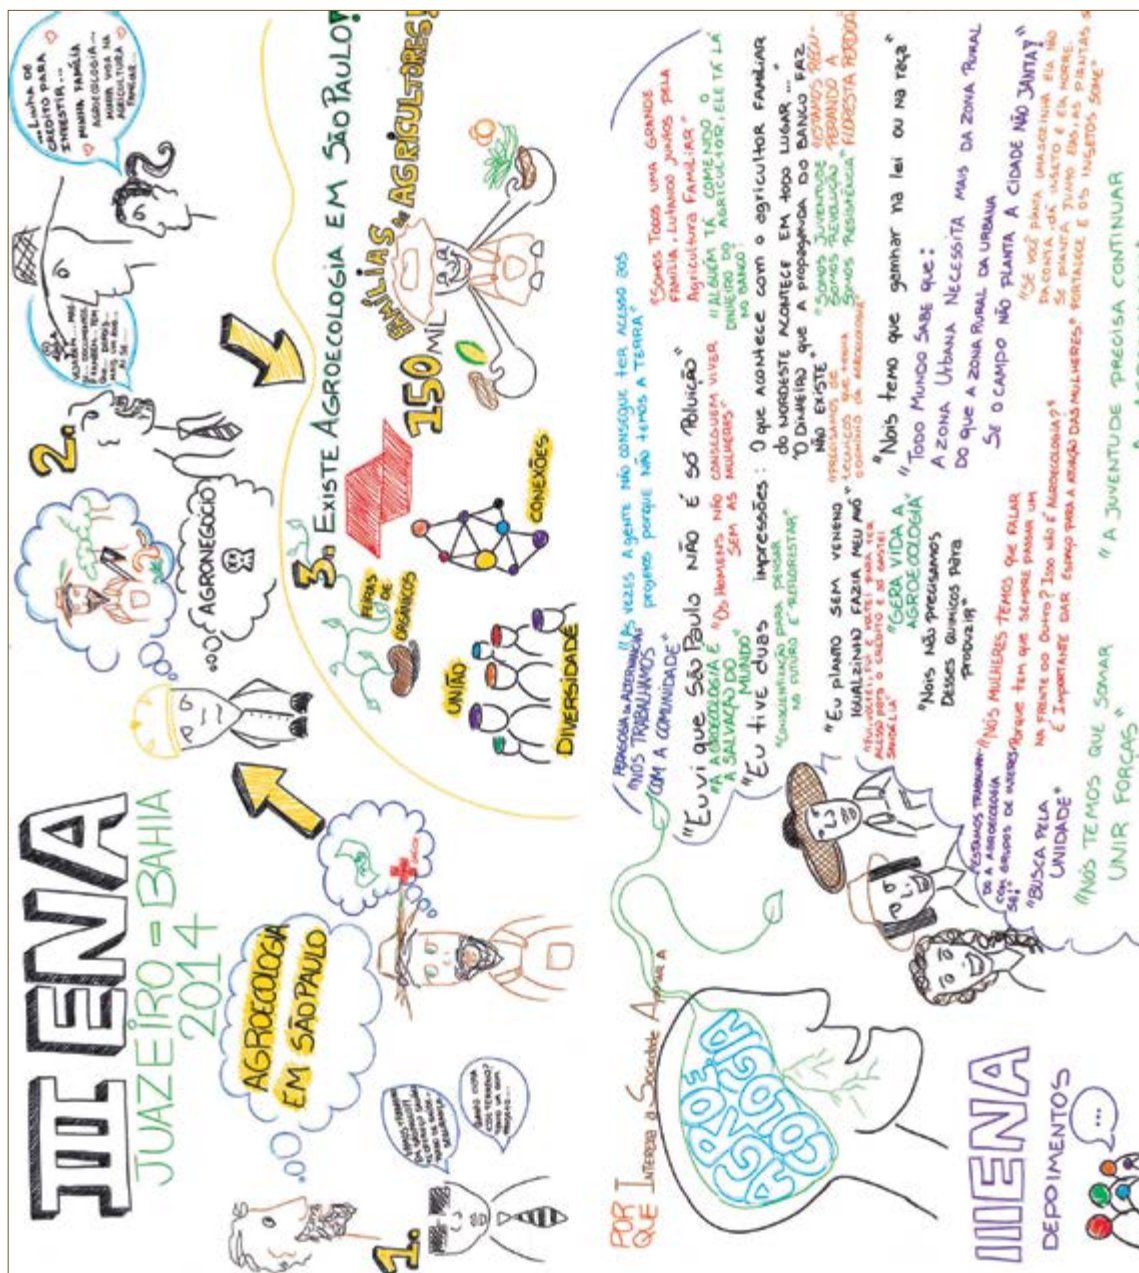 III ENA
JUAZEÍRO = BAHIA
2014
AGROECOLOGIA
EM SÃO PAULO
1.
2.
...LINHA DE
CRÉDITO PARA
INVESTIR...
MINHA FAMÍLIA
AGROECOLOGIA...
MINHA VIDA NA
AGRICULTURA
FAMILIAR...
AGRONEGÓCIO
3. EXISTE AGROECOLOGIA EM SÃO PAULO!
FEIRAS
DE
ORGÂNICOS
150 MIL
FAMÍLIAS de AGRICULTORES!
UNIÃO
DIVERSIDADE
CONEXÕES
POR
QUE INTERESSA à Sociedade Apoiar a
AGROECOLOGIA
III ENA
DEPOIMENTOS
...
PEDAGOGIA da ALTERNÂNCIA
"NÓS TRABALHAMOS
COM A COMUNIDADE"
"ÀS VEZES A gente NÃO consegue ter ACESSO aos
projetos porque NÃO temos A TERRA"
"SOMOS TODOS UMA GRANDE
FAMÍLIA, LUTANDO JUNTOS PELA
Agricultura Familiar"
"Eu vi que São Paulo NÃO é só Poluição"
"A AGROECOLOGIA É
A SALVAÇÃO DO
MUNDO"
"OS HOMENS NÃO CONSEGUEM VIVER
SEM AS MULHERES"
"ALGUÉM TÁ COMENDO O
DINHEIRO DO AGRICULTOR, ELE TÁ LÁ
NO BANCO"
"Eu tive duas impressões: O que acontece com o agricultor FAMILIAR
do NORDESTE ACONTECE EM TODO LUGAR..."
"CONSCIENTIZAÇÃO PARA PENSAR
NO FUTURO E REFLORESTAR"
"O DINHEIRO que A propaganda DO BANCO FAZ
NÃO EXISTE"
"PRECISAMOS DE
técnicos que tenha
o domínio da agroecologia"
"SOMOS JUVENTUDE
SOMOS REVOLUÇÃO
SOMOS RESISTÊNCIA"
"ESTAMOS RECU-
PERANDO A
FLORESTA PERDIDA"
"EU PLANTO SEM VENENO
IGUALZINHO FAZIA MEU AVÔ"
"FUI, VOLTEI, FUI E VOLTEI PARA TER
ACESSO PARA O CRÉDITO E SÓ GASTEI
SANDÁLIA"
"GERA VIDA A
AGROECOLOGIA"
"Nois temo que ganhar na lei ou na raça"
"Nois NÃO precisamos
DESSES QUÍMICOS PARA
PRODUZIR"
"TODO MUNDO SABE que:
A ZONA Urbana NECESSITA MAIS DA ZONA RURAL
DO QUE A ZONA RURAL DA URBANA
SE O CAMPO NÃO PLANTA A CIDADE NÃO JANTA!"
"ESTAMOS TRABALHAN-
DO A AGROECOLOGIA
COM GRUPOS DE INTERES-
SE!"
"NÓS MULHERES TEMOS QUE FALAR
Porque tem que sempre passar um
NA FRENTE DO OUTRO? ISSO NÃO É AGROECOLOGIA?"
É IMPORTANTE DAR ESPAÇO PARA A ATUAÇÃO DAS MULHERES"
"SE VOCÊ PLANTA UMA SOZINHA ELA NÃO
DA CONTA, DÁ INSETO E ELA MORRE.
SE PLANTA JUNTO ELAS, AS PLANTAS S
FORTALECE E OS INSETOS SOME"
"BUSCA PELA
UNIDADE"
"NÓS TEMOS QUE SOMAR
UNIR FORÇAS"
"A JUVENTUDE PRECISA CONTINUAR